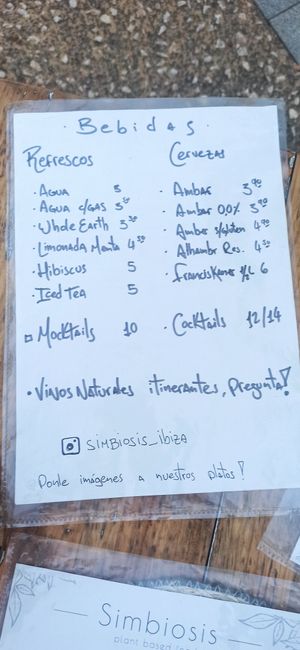 · Bebidas ·
Refrescos
· Agua 3
· Agua c/gas 3⁵⁰
· Whole Earth 3⁵⁰
· Limonada Menta 4⁵⁰
· Hibiscus 5
· Iced Tea 5
Mocktails 10
Cervezas
· Ambar 3⁹⁰
· Ambar 0,0% 3⁹⁰
· Ambar s/gluten 4⁹⁰
· Alhambr Res. 4⁵⁰
· Franciskaner ½L 6
· Cocktails 12/14
· Vinos Naturales itinerantes, Pregunta!
simbiosis_ibiza
Ponle imágenes a nuestros platos!
Simbiosis
plant based